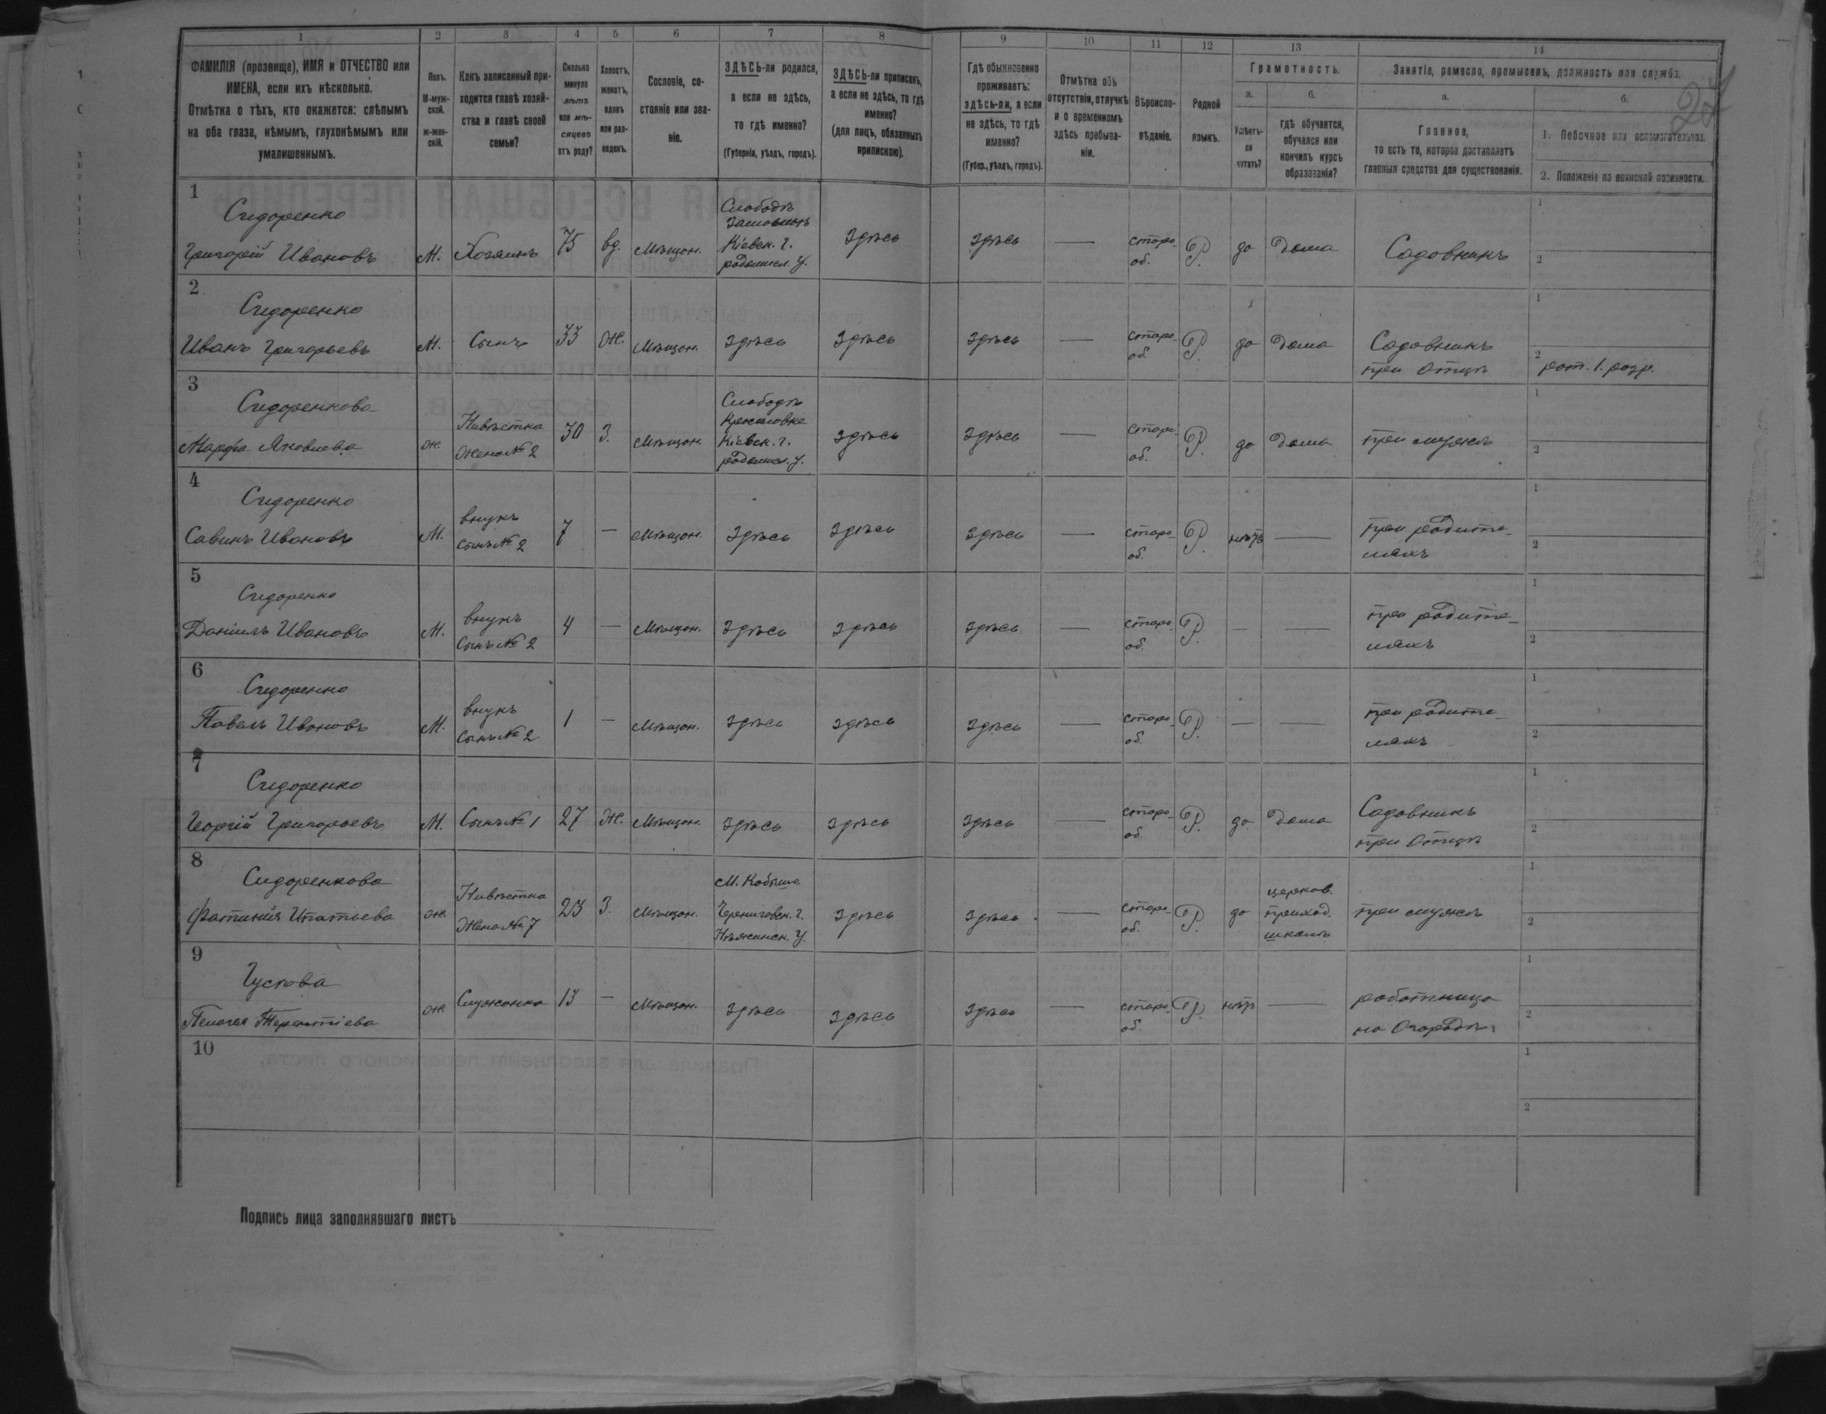 1 2 3 4 5 6 7 8 9 10 11 12 13 14
ФАМИЛІЯ (прозвище), ИМЯ и ОТЧЕСТВО или
ИМЕНА, если ихъ нѣсколько.
Отмѣтка о тѣхъ, кто окажется: слѣпымъ
на оба глаза, нѣмымъ, глухонѣмымъ или
умалишеннымъ.
Полъ.
М-муж-
ской.
ж-жен-
скій.
Какъ записанный при-
ходится главѣ хозяй-
ства и главѣ своей
семьи?
Сколько
минуло
лѣтъ
или мѣ-
сяцевъ
отъ роду?
Холостъ,
женатъ,
вдовъ
или раз-
веденъ.
Сословіе, со-
стояніе или зва-
ніе.
ЗДѢСЬ-ли родился,
а если не здѣсь,
то гдѣ именно?
(Губернія, уѣздъ, городъ).
ЗДѢСЬ-ли приписанъ,
а если не здѣсь, то гдѣ
именно?
(для лицъ, обязанныхъ
припискою).
Гдѣ обыкновенно
проживаетъ:
здѣсь-ли, а если
не здѣсь, то гдѣ
именно?
(Губер., уѣздъ, городъ).
Отмѣтка объ
отсутствіи, отлучкѣ
и о временномъ
здѣсь пребыва-
ніи.
Вѣроиспо-
вѣданіе.
Родной
языкъ.
Грамотность.
а.
Умѣетъ-
ли
читать?
б.
гдѣ обучается,
обучался или
кончилъ курсъ
образованія?
Занятія, ремесло, промыселъ, должность или служба.
а.
Главное,
то есть то, которое доставляетъ
главныя средства для существованія.
б.
1. Побочное или вспомогательное.
2. Положеніе по воинской повинности.
27
1
Сидоренко
Григорій Ивановъ
М.
Хозяинъ
75
вд.
Мѣщан.
Слободѣ
Кіевск. г.
радомысл. у.
Здѣсь
Здѣсь
—
старо-
об.
Р.
да
дома
Садовникъ
1
2
2
Сидоренко
Иванъ Григорьевъ
М.
Сынъ
33
Ж.
Мѣщан.
Здѣсь
Здѣсь
Здѣсь
—
старо-
об.
Р.
да
дома
Садовникъ
при отцѣ
1
2
рат. 1. разр.
3
Сидоренкова
Марфа Яковлева
ж.
Нивѣстка
Жена № 2
30
З.
Мѣщан.
Слободѣ
Кіевск. г.
радомысл. у.
Здѣсь
Здѣсь
—
старо-
об.
Р.
да
дома
при мужѣ
1
2
4
Сидоренко
Савинъ Ивановъ
М.
внукъ
Сынъ № 2
7
—
Мѣщан.
Здѣсь
Здѣсь
Здѣсь
—
старо-
об.
Р.
нѣтъ
—
при родите-
ляхъ
1
2
5
Сидоренко
Даніилъ Ивановъ
М.
внукъ
Сынъ № 2
4
—
Мѣщан.
Здѣсь
Здѣсь
Здѣсь
—
старо-
об.
Р.
—
—
при родите-
ляхъ
1
2
6
Сидоренко
Павелъ Ивановъ
М.
внукъ
Сынъ № 2
1
—
Мѣщан.
Здѣсь
Здѣсь
Здѣсь
—
старо-
об.
Р.
—
—
при родите-
ляхъ
1
2
7
Сидоренко
Георгій Григорьевъ
М.
Сынъ № 1
27
Ж.
Мѣщан.
Здѣсь
Здѣсь
Здѣсь
—
старо-
об.
Р.
да
дома
Садовникъ
при отцѣ
1
2
8
Сидоренкова
Фатинія Игнатьева
ж.
Нивѣстка
Жена № 7
23
З.
Мѣщан.
М. Кобыше
Черниговск. г.
Нѣжинск. у.
Здѣсь
Здѣсь
—
старо-
об.
Р.
да
церков.
приход.
школѣ
при мужѣ
1
2
9
Гускова
Пелагея Терентіева
ж.
Служанка
13
—
Мѣщан.
Здѣсь
Здѣсь
Здѣсь
—
старо-
об.
Р.
нѣтъ
—
работница
на Огородѣ
1
2
10
1
2
Подпись лица заполнявшаго листъ